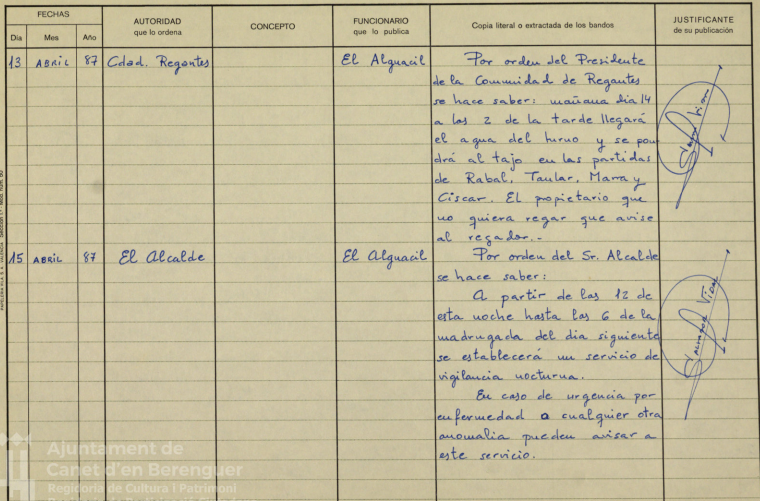 FECHAS
Día Mes Año
AUTORIDAD
que lo ordena
CONCEPTO
FUNCIONARIO
que lo publica
Copia literal o extractada de los bandos
JUSTIFICANTE
de su publicación
13 ABRIL 87 Cdad. Regantes El Alguacil Por orden del Presidente
de la Communidad de Regantes
se hace saber: mañana dia 14
a las 2 de la tarde llegará
el agua del turno y se pon
drá al tajo en las partidas
de Rabal, Taular, Marra y
Ciscar. El propietario que
no quiera regar que avise
al regador.-
15 ABRIL 87 El Alcalde El Alguacil Por orden del Sr. Alcalde
se hace saber:
A partir de las 12 de
esta noche hasta las 6 de la
madrugada del dia siguiente
se establecerá un servicio de
vigilancia nocturna.
En caso de urgencia por
enfermedad o cualquier otra
anomalia pueden avisar a
este servicio.
Salvador Vidal
Ajuntament de
Canet d'en Berenguer
Regidoria de Cultura i Patrimoni